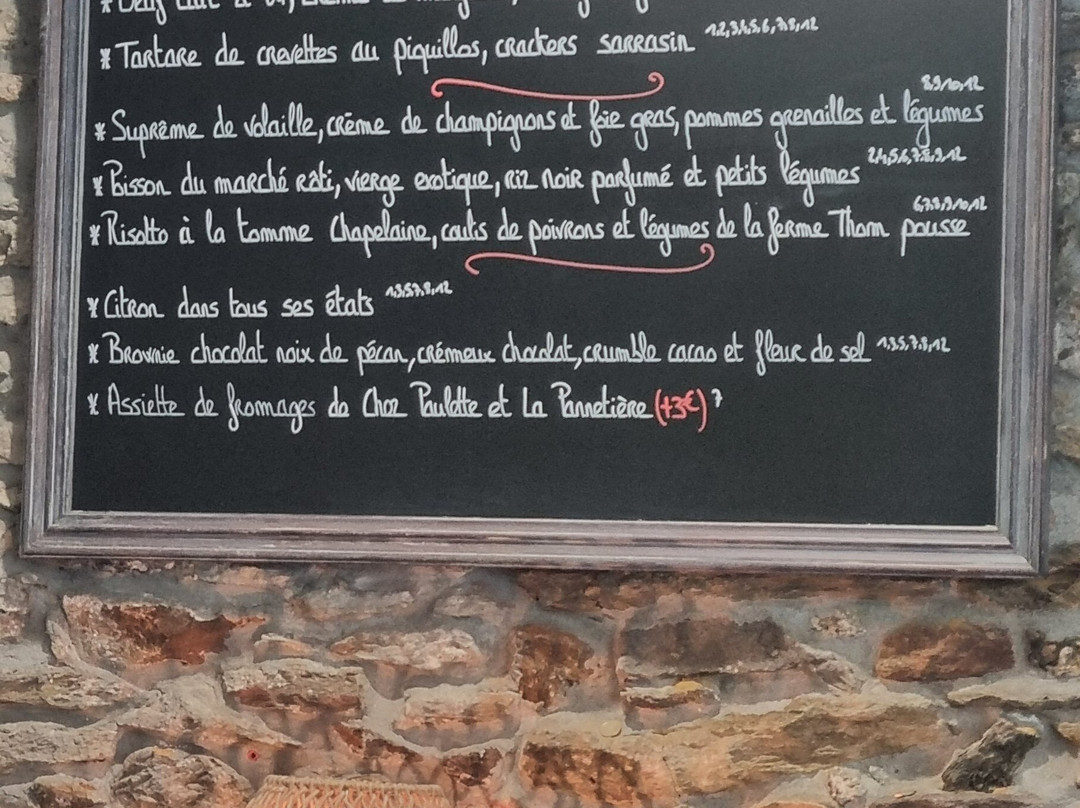 * Tartare de crevettes au piquillos, crackers sarrasin 1,2,3,4,5,6,7,8,12
* Suprême de volaille, crème de champignons et foie gras, pommes grenailles et légumes 8,9,10,12
* Poisson du marché rôti, vierge exotique, riz noir parfumé et petits légumes 2,4,5,6,7,8,9,12
* Risotto à la tomme Chapelaine, coulis de poivrons et légumes de la ferme Thom pousse 6,7,8,9,10,12
* Citron dans tous ses états 1,3,5,7,8,12
* Brownie chocolat noix de pécan, crémeux chocolat, crumble cacao et fleur de sel 1,3,5,7,8,12
* Assiette de fromages de Chez Paulette et La Pannetière (+3€) 7